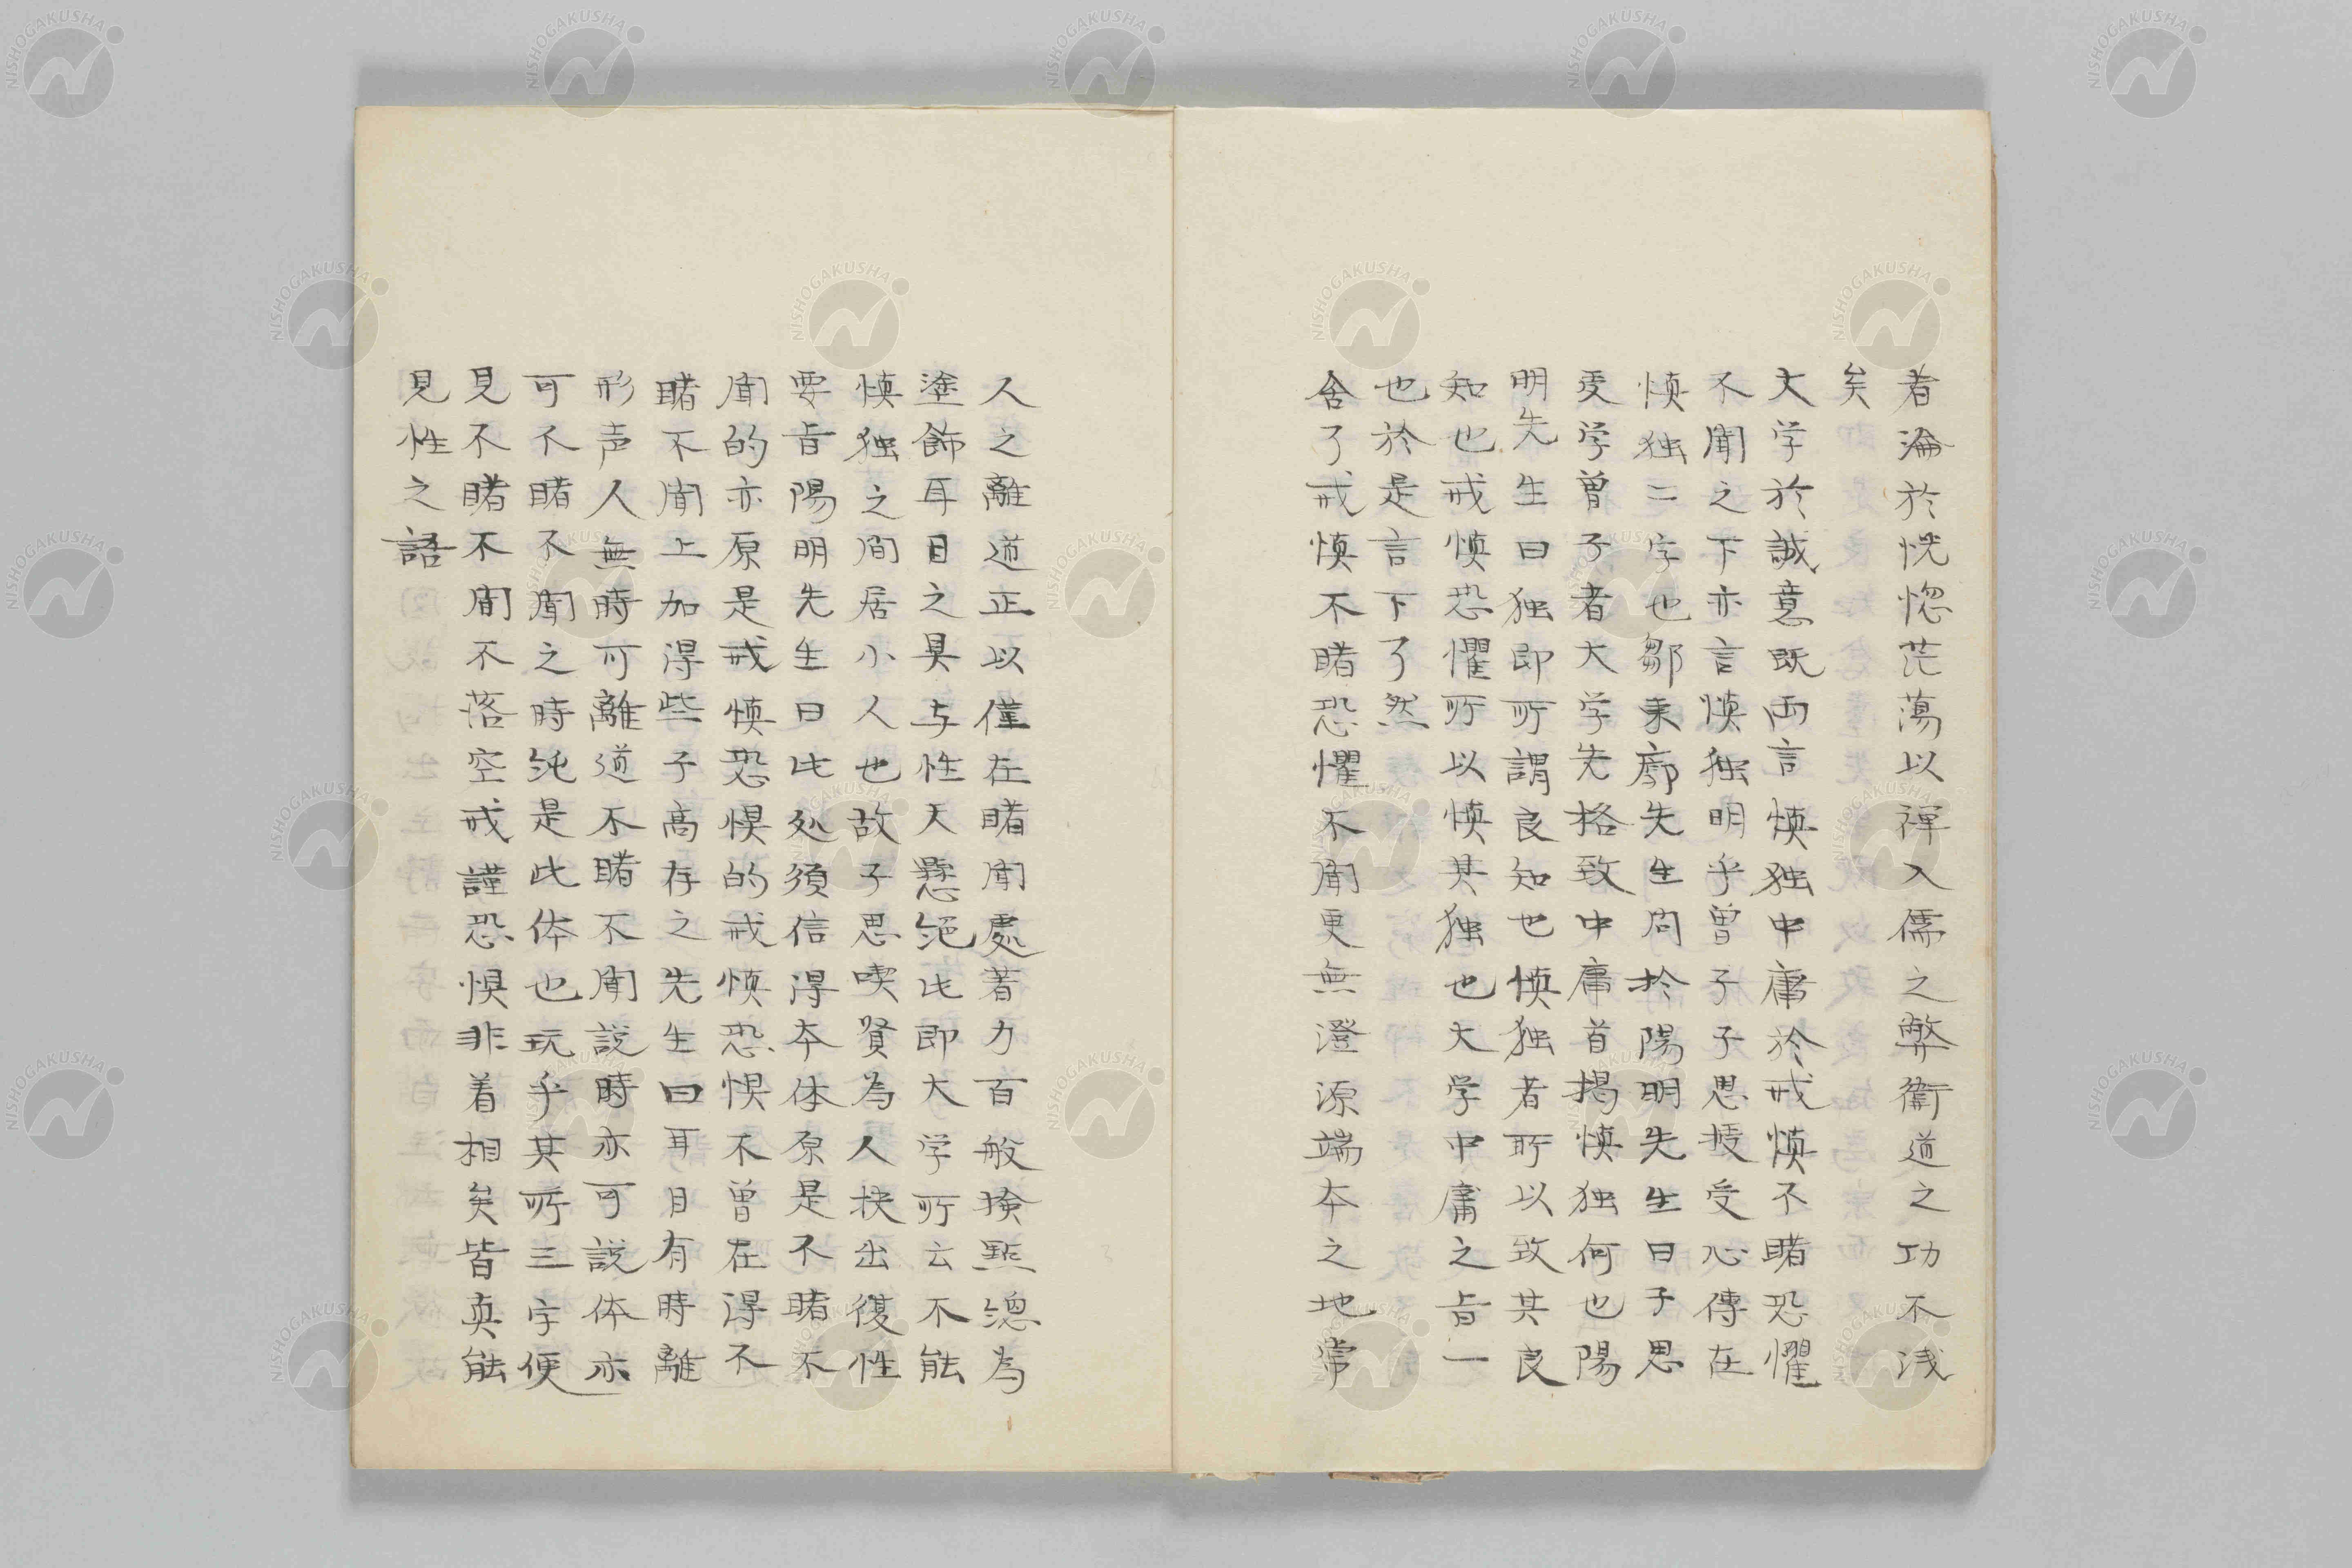 者淪於恍惚茫蕩以禅入儒之弊衛道之功不浅
矣
大学於誠意既両言慎独中庸於戒慎不睹恐懼
不聞之下亦言慎独明乎曽子子思授受心傳在
慎独二字也鄒東廓先生問於陽明先生曰子思
受学曽子者大学先格致中庸首掲慎独何也陽
明先生曰独即所謂良知也慎独者所以致其良
知也戒慎恐懼所以慎其独也大学中庸之㫖一
也於是言下了然
舎了戒慎不睹恐懼不聞更無澄源端本之地常
人之離道正以僅在睹聞處著力百般掩㸃總為
塗飾耳目之具与性天懸絶此即大学所云不能
慎独之間居小人也故子思喫𦂳為人抉出復性
要㫖陽明先生曰此処須信得本体原是不睹不
聞的亦原是戒慎恐惧的戒慎恐惧不曽在得不
睹不聞上加得些子高存之先生曰耳目有時離
形声人無時可離道不睹不聞説時亦可説体亦
可不睹不聞之時純是此体也玩乎其所三字便
見不睹不聞不落空戒謹恐惧非着相矣皆真能
見性之語
NISHOGAKUSHA